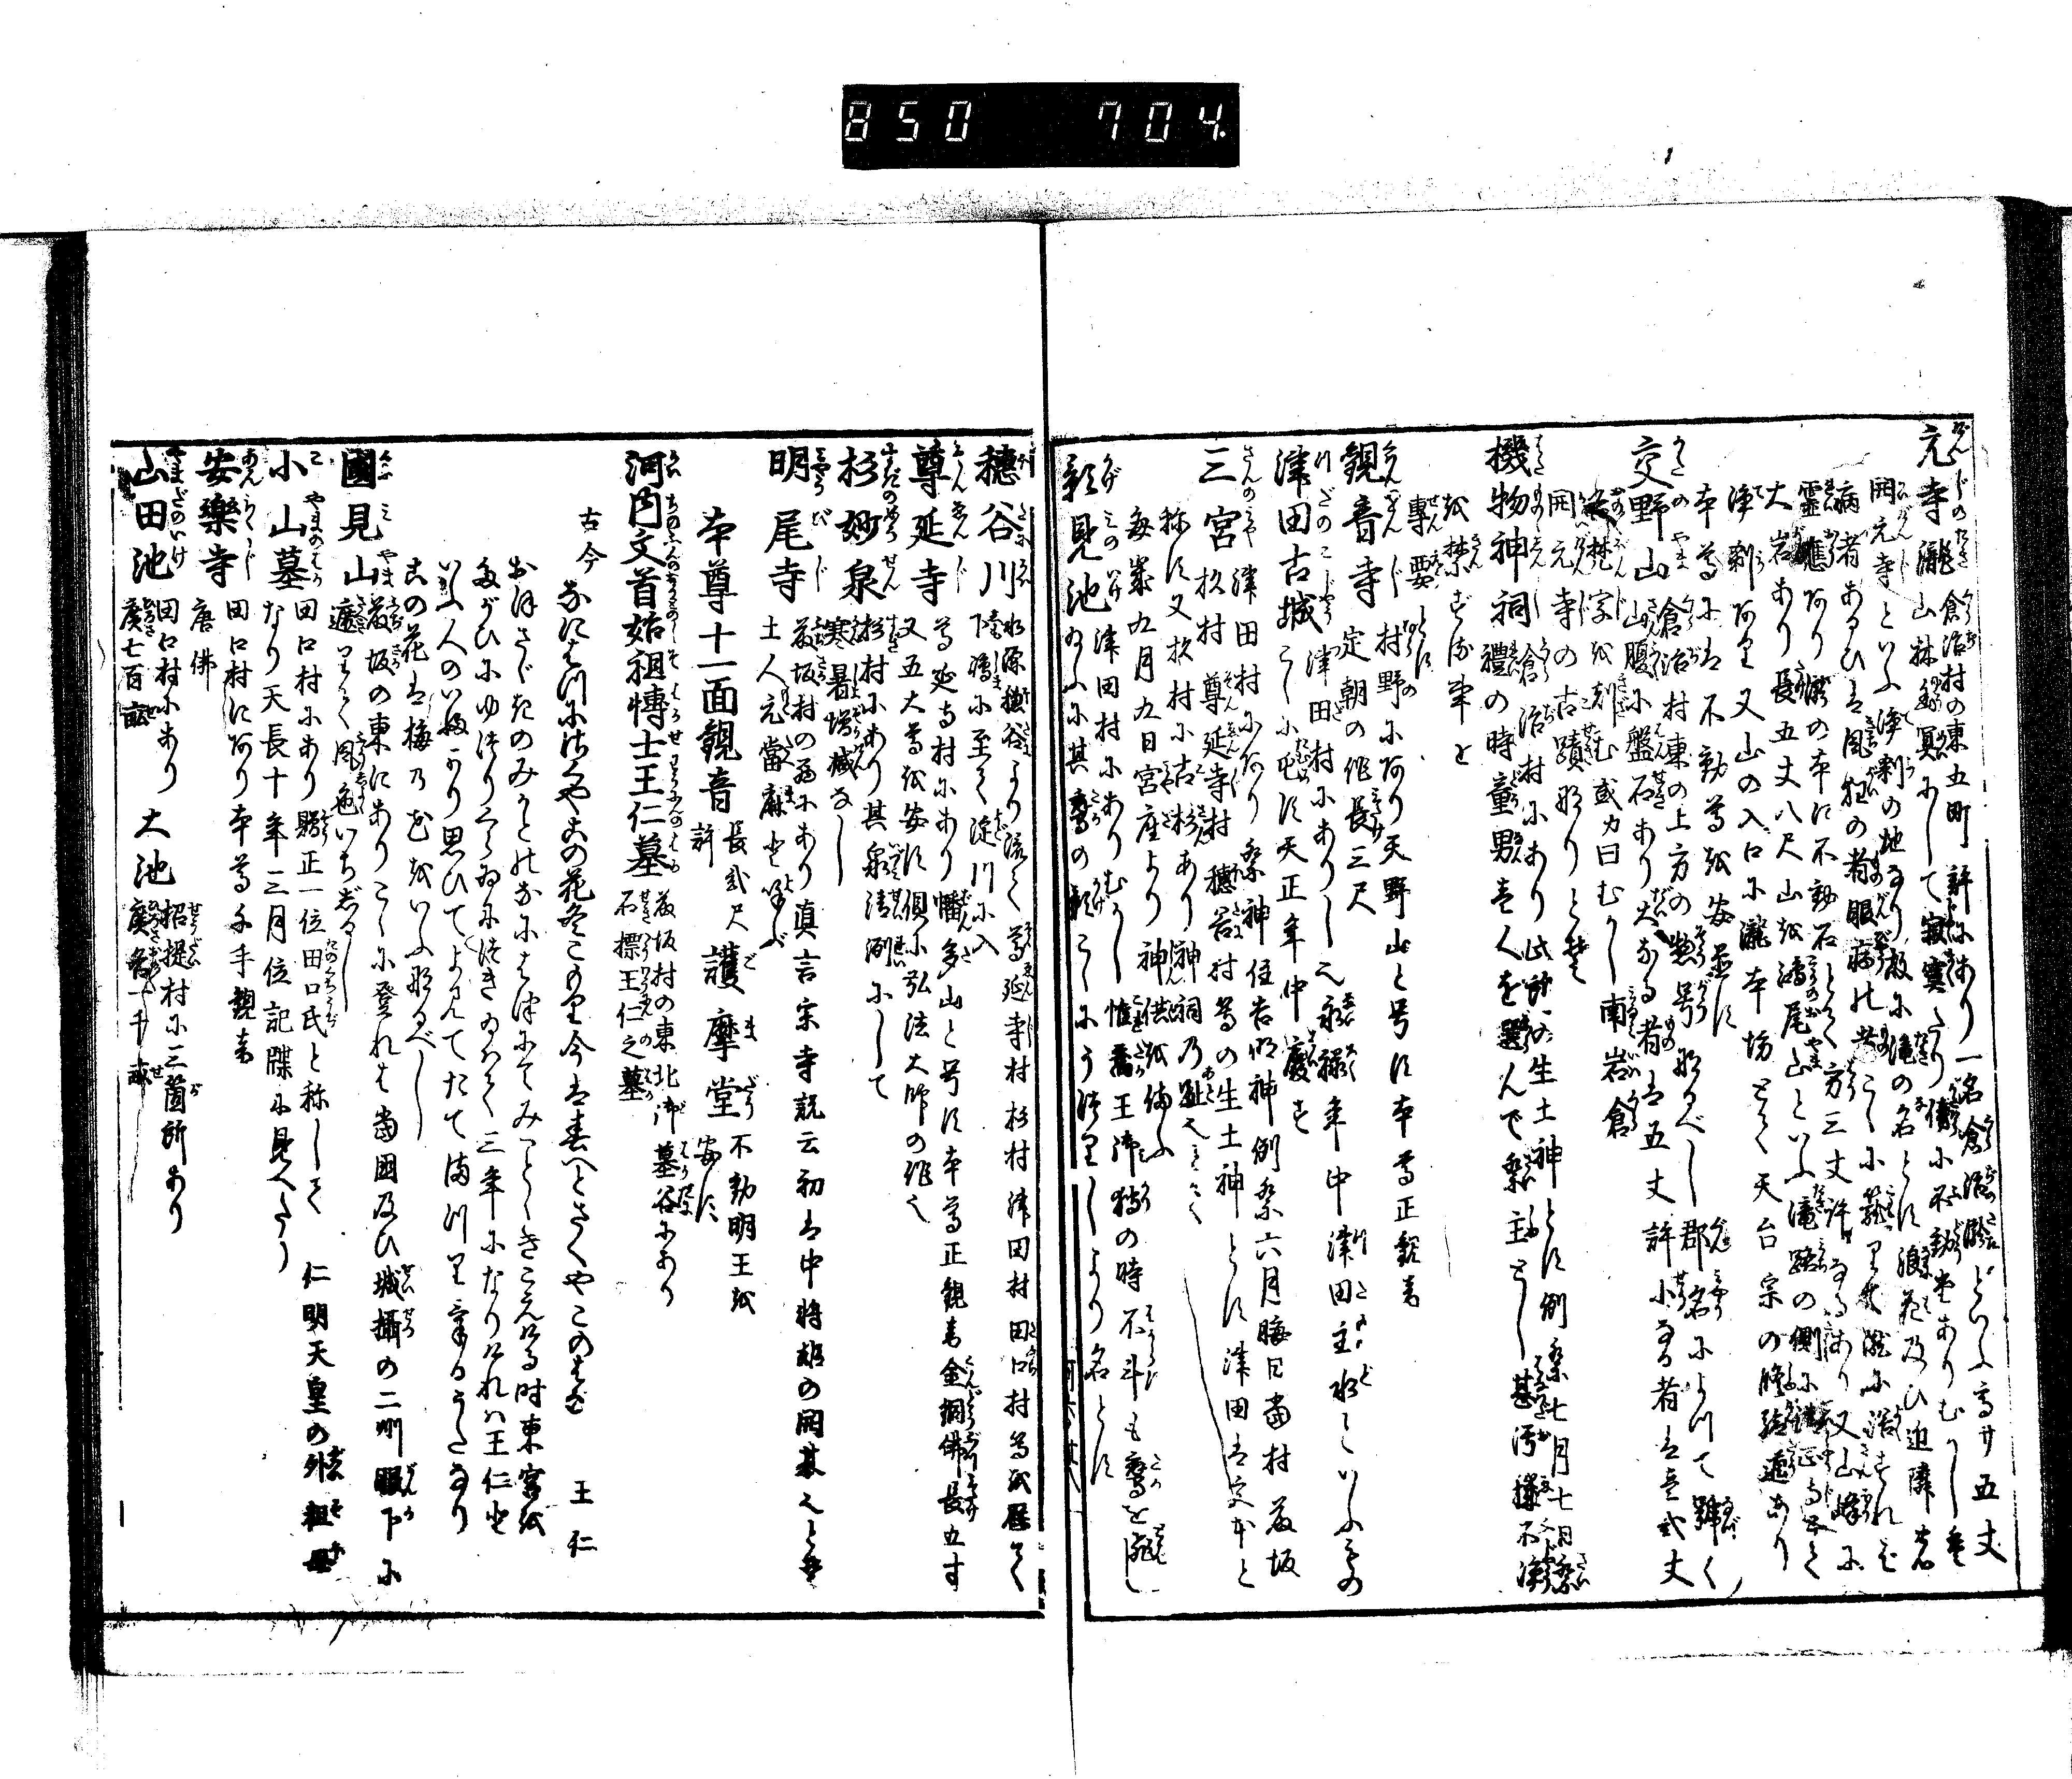 850 704
元寺瀧 倉治村の東五町許にあり一名倉治瀧といふ高サ五丈
山林幽冥にして寂寞たり傍に不動堂ありむかし
開元寺といふ浄刹の地なり故に滝の名とす 及び近隣
病者あるひは風狂の者眼病の こゝに籠りて瀧に浴すれば
霊應あり瀧の本に不動石とて方三丈許なるあり又山峰に
大岩あり長五丈八尺山を 尾山といふ滝路の側に
浄刹あり又山の入口に瀧本坊とて天台宗の あり
本尊には不動尊を安置す
交野山 倉治村東の上方の惣号なるべし郡名によつて號く
山腹に盤石あり大なる者は五丈許小なる者は壱弐丈
梵字を刻む或力曰むかし 南岩倉
開元寺の古蹟なりとぞ
機物神祠 倉治村にあり此所の生土神とす例祭七月七日祭
禮の時童男壱人を選んで祭主とし甚汚穢不浄
を禁ずる事を
專要とす
観音寺 村野にあり天野山と号す本尊正観音
定朝の作長三尺
津田古城 津田村にありし之永禄年中津田主水といふもの
こゝに屯す天正年中廃す
三宮 津田村にあり祭神住吉明神例祭六月晦日當村藤坂
杉村尊延寺村穂谷村等の生土神とす津田は交本と
称す又杉村に古杉あり神祠乃趾之とて
毎歳九月九日宮座より神供を備ふ
影見池 津田村にありむかし惟喬王御狩の時不斗も鷹を
ゆふに其鷹の影こゝにうつりしより名とす
穂谷川 水源穂谷より流て尊延寺村杉村津田村田口村等を歴て
に至て淀川に入
尊延寺 尊延寺村にあり幡多山と号す本尊正観音金銅佛長五寸
又五大尊を安す倶に弘法大師の作也
杉妙泉 杉村にあり其泉清冽にして
寒暑増減なし
明尾寺 藤坂村の西にあり真言宗寺説云初は中将姫の開基之とぞ
土人元當麻と呼ぶ
本尊十一面観音 長弐尺許 護摩堂 不動明王を安す
河内文首始祖博士王仁墓 藤坂村の東北御墓谷にあり
石標王仁之墓
古今 なにはづにさくやこの花冬こもり今は春べとさくやこのはな 王仁
おほさゞきのみかどのなにはづにてみこときこえける時東宮を
たがひにゆづりてくらゐにつきたまはで三年になりければ王仁と
いふ人のいぶかり思ひてよみてたてまつりけるうたなり
この花は梅乃花をいふなるべし
國見山 藤坂の東にありこゝに登れば當國及び城攝の二州眼下に
遮りて風色いちじるし
小山墓 田口村にあり贈正一位田口氏と称して 仁明天皇の外祖母
なり天長十年三月位記牒に見へたり
安樂寺 田口村にあり本尊千手観音
唐佛
山田池 田口村にあり 大池 招提村に三箇所あり
廣七百畝 廣各一千畝